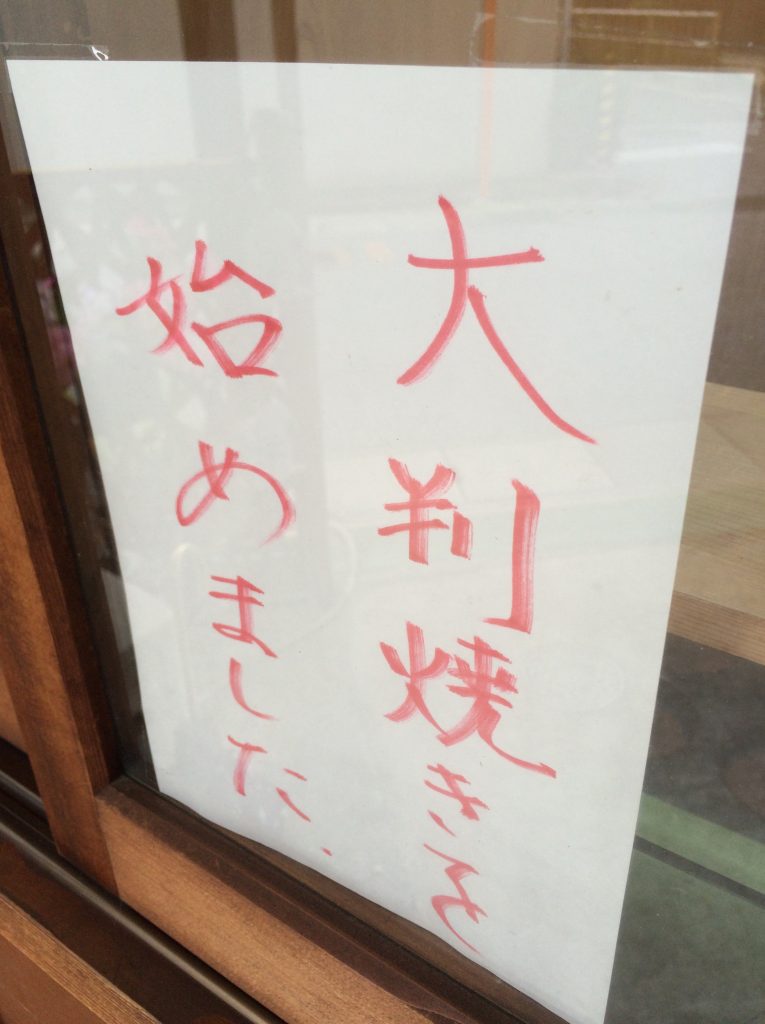 大判焼きを
始めました.